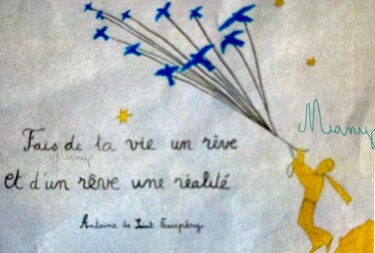 Miamy
Fais de ta vie un rêve
Miamy
et d'un rêve une réalité
Antoine de Saint Exupéry